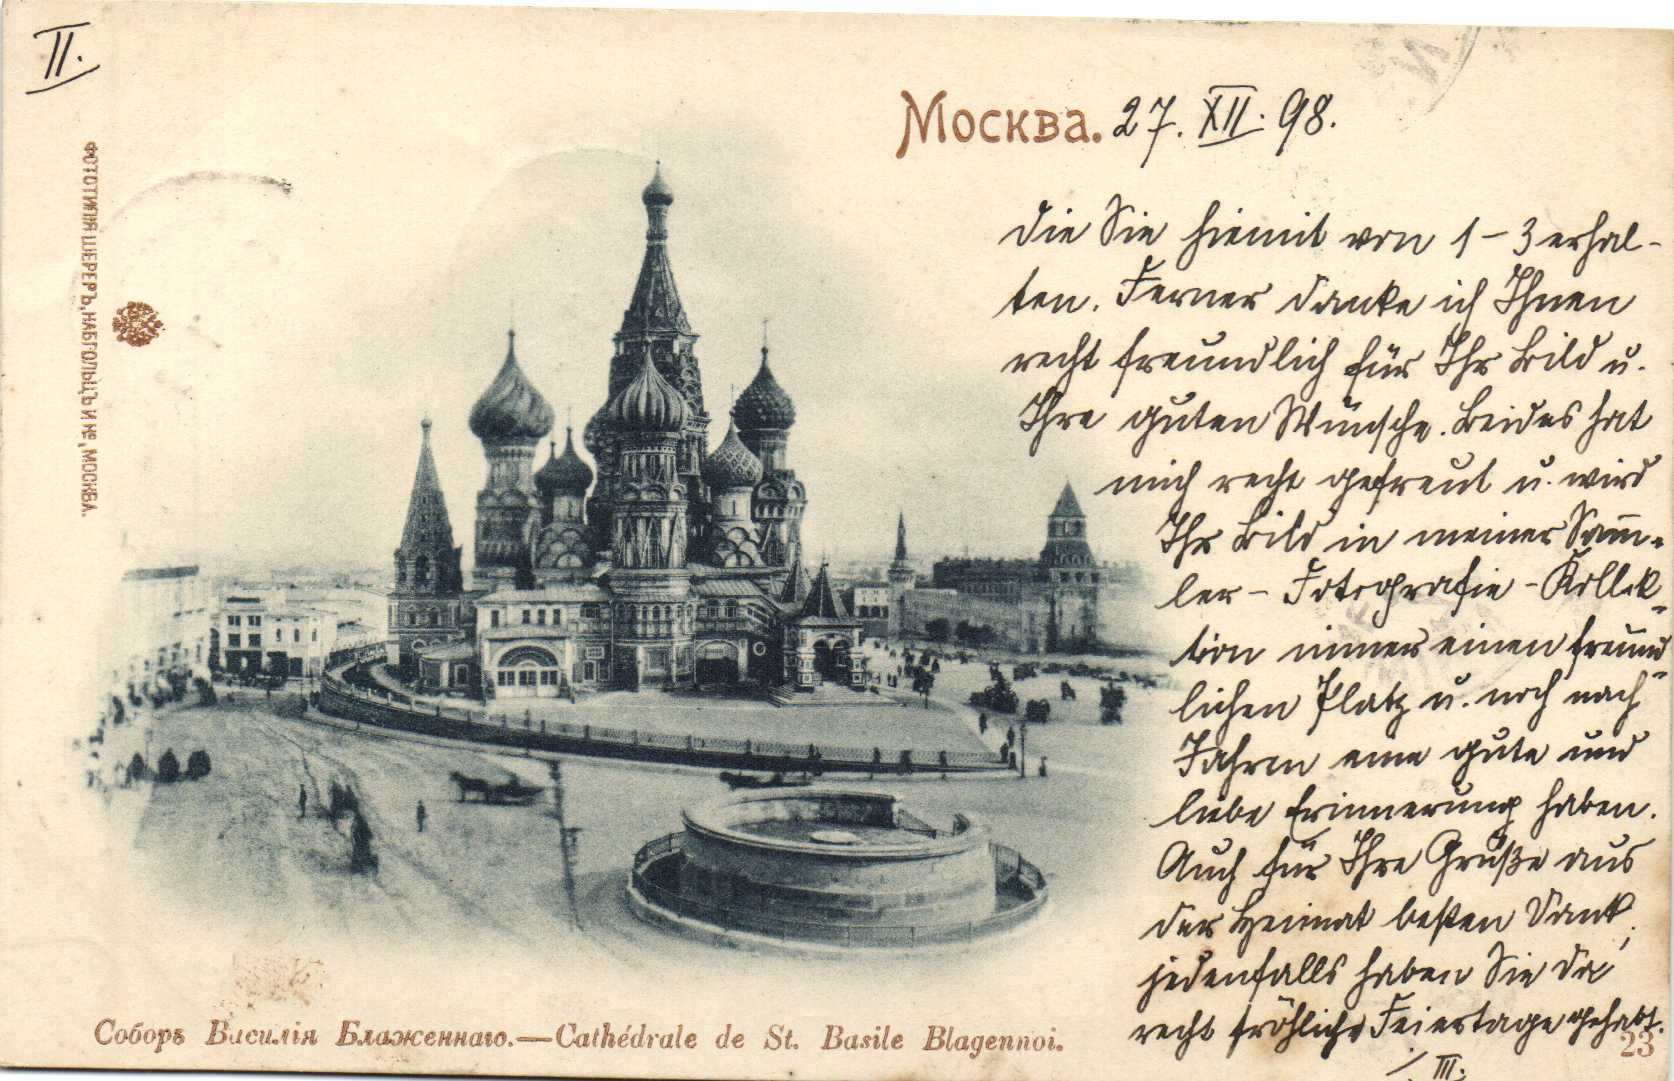 II.
ФОТОТИПІЯ ШЕРЕРЪ, НАБГОЛЬЦЪ И Ко, МОСКВА.
Москва. 27. XII. 98.
die Sie hiemit von 1–3 erhal-
ten. Ferner danke ich Ihnen
recht freundlich für Ihr Bild u.
Ihre guten Wünsche. Beides hat
mich recht gefreut u. wird
Ihr Bild in meiner Samm-
ler-Fotografie-Kollek-
tion immer einen freund-
lichen Platz u. noch nach
Jahren eine gute und
liebe Erinnerung haben.
Auch für Ihre Grüße aus
der Heimat besten Dank,
jedenfalls haben Sie da
recht fröhliche Feiertage gehabt.
/ III.
Соборъ Василія Блаженнаго.—Cathédrale de St. Basile Blagennoi.
23